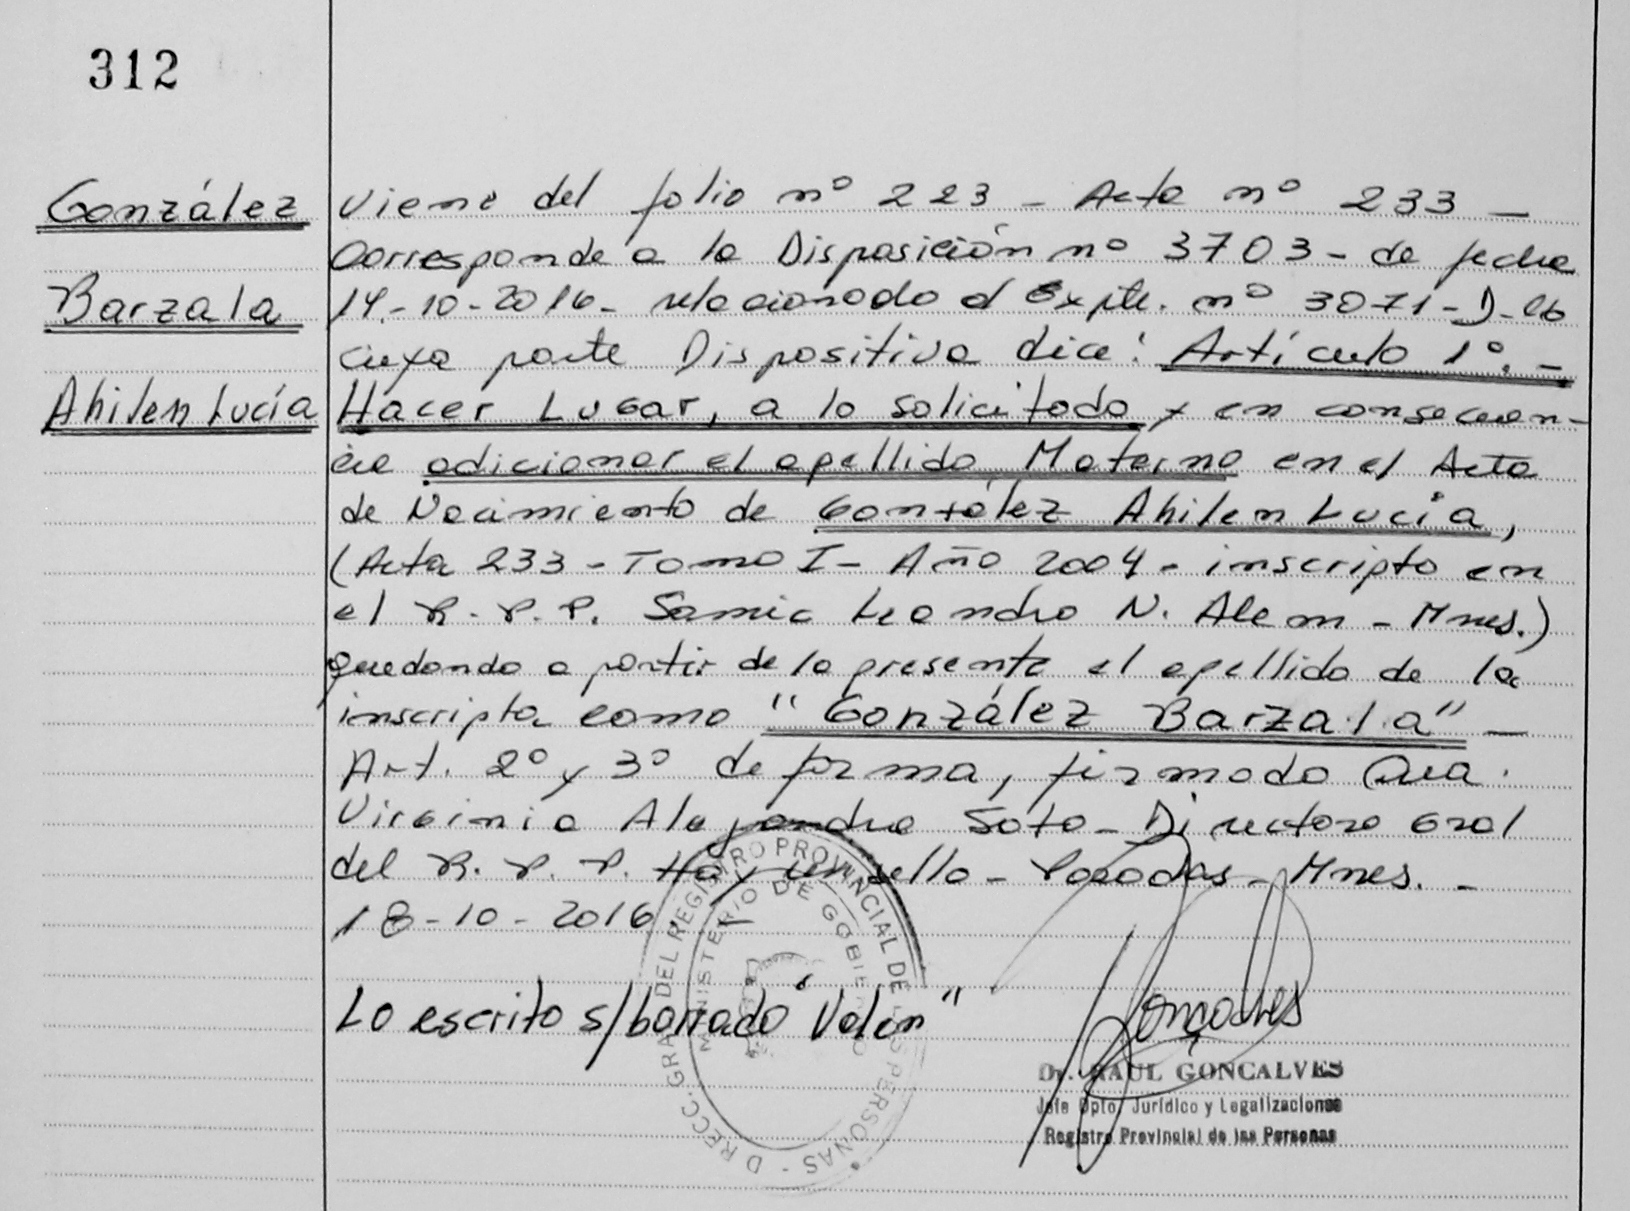 312
González
Barzala
Ahilen Lucía
Viene del folio nº 223 - Acta nº 233 -
Corresponde a la Disposición nº 3703 - de fecha
14-10-2016 - relacionado al Expte. nº 3071-D-16
cuya parte Dispositiva dice: Artículo 1º. -
Hacer Lugar, a lo solicitado y en consecuen-
cia adicionar el apellido Materno en el Acta
de Nacimiento de González Ahilen Lucía,
(Acta 233 - Tomo I - Año 2004 - inscripto en
el R. P. P. Samic Leandro N. Alem - Mnes.)
quedando a partir de la presente el apellido de la
inscripta como "González Barzala" -
Art. 2º y 3º de forma, firmado
Virginia Alejandra Soto - Directora Gral
del R. P. P. Hay un sello - Posadas - Mnes. -
18-10-2016 -
Lo escrito s/borrado "Valen"
DIRECC. GRAL. DEL REGISTRO PROVINCIAL DE LAS PERSONAS -
MINISTERIO DE GOBIERNO
Goncalves
Dr. RAUL GONCALVES
Jefe Dpto. Jurídico y Legalizaciones
Registro Provincial de las Personas